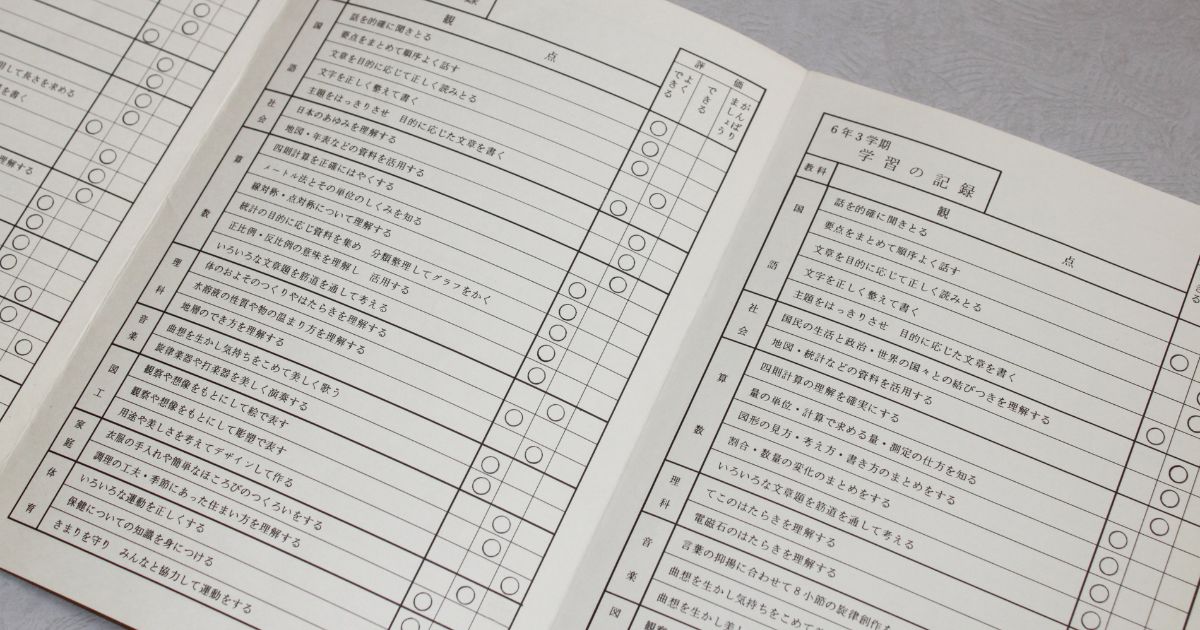 して長さを求める
を書く
理解する
録
観 点
評 価
よくできる
できる
がんばりましょう
国語
話を的確に聞きとる
要点をまとめて順序よく話す
文章を目的に応じて正しく読みとる
文字を正しく整えて書く
主題をはっきりさせ 目的に応じた文章を書く
社会
日本のあゆみを理解する
地図・年表などの資料を活用する
算数
四則計算を正確にはやくする
メートル法とその単位のしくみを知る
線対称・点対称について理解する
統計の目的に応じ資料を集め 分類整理してグラフをかく
正比例・反比例の意味を理解し 活用する
いろいろな文章題を筋道を通して考える
理科
体のおよそのつくりやはたらきを理解する
水溶液の性質や物の温まり方を理解する
地層のでき方を理解する
音楽
曲想を生かし気持ちをこめて美しく歌う
旋律楽器や打楽器を美しく演奏する
図工
観察や想像をもとにして絵で表す
観察や想像をもとにして彫塑で表す
用途や美しさを考えてデザインして作る
家庭
衣服の手入れや簡単なほころびのつくろいをする
調理の工夫・季節にあった住まい方を理解する
体育
いろいろな運動を正しくする
保健についての知識を身につける
きまりを守り みんなと協力して運動をする
6年3学期
学習の記録
教科
観 点
国語
話を的確に聞きとる
要点をまとめて順序よく話す
文章を目的に応じて正しく読みとる
文字を正しく整えて書く
主題をはっきりさせ 目的に応じた文章を書く
社会
国民の生活と政治・世界の国々との結びつきを理解する
地図・統計などの資料を活用する
算数
四則計算の理解を確実にする
量の単位・計算で求める量・測定の仕方を知る
図形の見方・考え方・書き方のまとめをする
割合・数量の変化のまとめをする
いろいろな文章題を筋道を通して考える
理科
てこのはたらきを理解する
電磁石のはたらきを理解する
音楽
言葉の抑揚に合わせて8小節の旋律創作を
曲想を生かし気持ちをこめて
曲想を生かし美し
図
観察